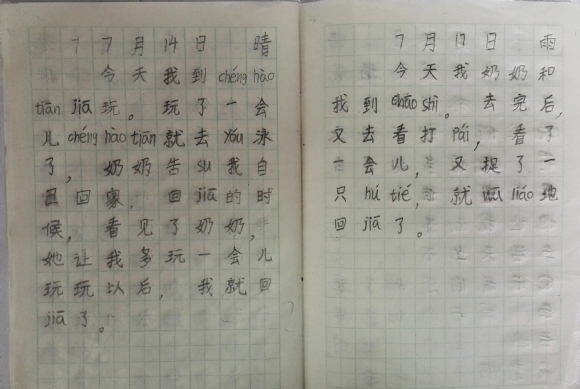 7 7月14日 晴
今天我到chéng hào
tiān jiā玩。玩了一会
儿chéng hào tiān就去yóu泳
了，奶奶告su我自
己回家，回jiā的时
候，看见了奶奶，
她让我多玩一会儿
玩玩以后，我就回
jiā了。
7月17日 雨
今天我奶奶和
我到chāo shì。去完后，
又去看打pái，看了
一会儿，又捉了一
只hú tié，就 liáo地
回jiā了。